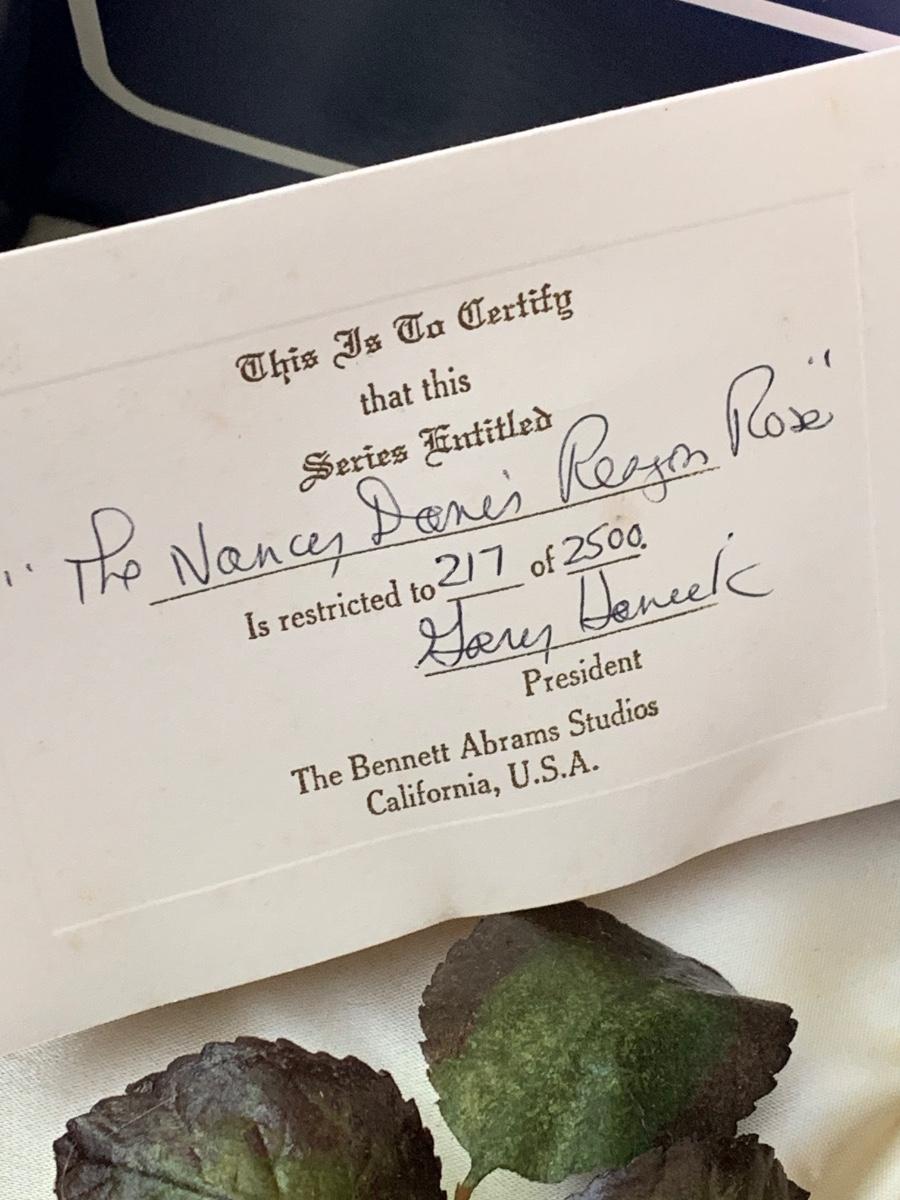 This Is To Certify
that this
Series Entitled
"The Nancy Davis Reagan Rose"
Is restricted to 217 of 2500.
Gary
President
The Bennett Abrams Studios
California, U.S.A.